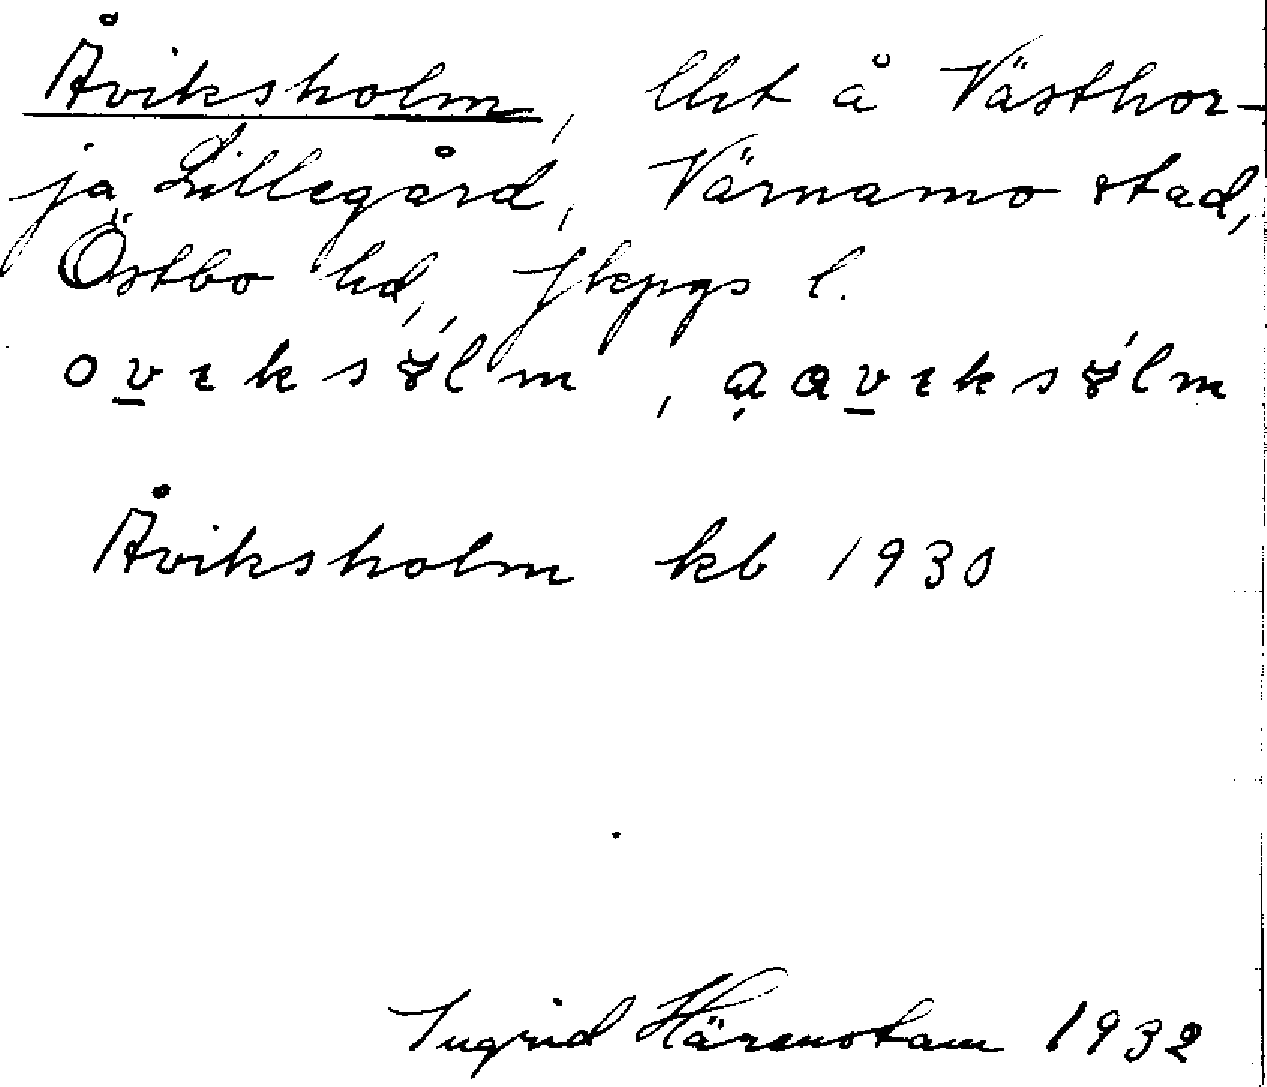 Åviksholm, lht å Västhor-
ja Lillegård, Värnamo stad,
Östbo hd, Jkpgs l.
Åviksholm kb 1930
Ingrid Härenstam 1932